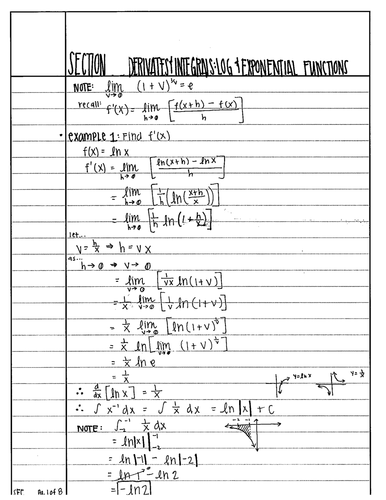 SECTION DERIVATES & INTEGRALS: LOG & EXPONENTIAL FUNCTIONS
NOTE: lim v→0 (1 + v)^(1/v) = e
recall: f'(x) = lim h→0 [(f(x+h) - f(x))/h]
• example 1: Find f'(x)
f(x) = ln x
f'(x) = lim h→0 [(ln(x+h) - ln x)/h]
= lim h→0 [1/h (ln((x+h)/x))]
= lim h→0 [1/h ln(1 + h/x)]
let...
v = h/x ⇒ h = vx
as...
h→0 ⇒ v→0
= lim v→0 [1/vx ln(1+v)]
= 1/x lim v→0 [1/v ln(1+v)]
= 1/x lim v→0 [ln(1+v)^(1/v)]
= 1/x ln[lim v→0 (1+v)^(1/v)]
= 1/x ln e
= 1/x
∴ d/dx [ln x] = 1/x
y=ln x
y=1/x
∴ ∫ x⁻¹ dx = ∫ 1/x dx = ln|x| + C
NOTE: ∫₋₂⁻¹ 1/x dx
-2 -1
= ln|x| |₋₂⁻¹
= ln|-1| - ln|-2|
= ln 1 - ln 2
= -ln 2
pg. 1 of 8